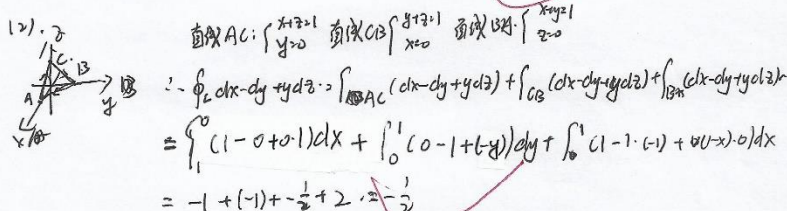 (2). z 直线AC: { x+z=1 y=0 直线CB { y+z=1 x=0 直线BA: { x+y=1 z=0
C B A y x
∴ ∮L dx-dy+ydz = ∫AC (dx-dy+ydz) + ∫CB (dx-dy+ydz) + ∫BA (dx-dy+ydz)
= ∫₁⁰ (1-0+0·1)dx + ∫₀¹ (0-1+(-y))dy + ∫₀¹ (1-1·(-1)+(1-x)·0)dx
= -1+(-1)+-½+2 = -½